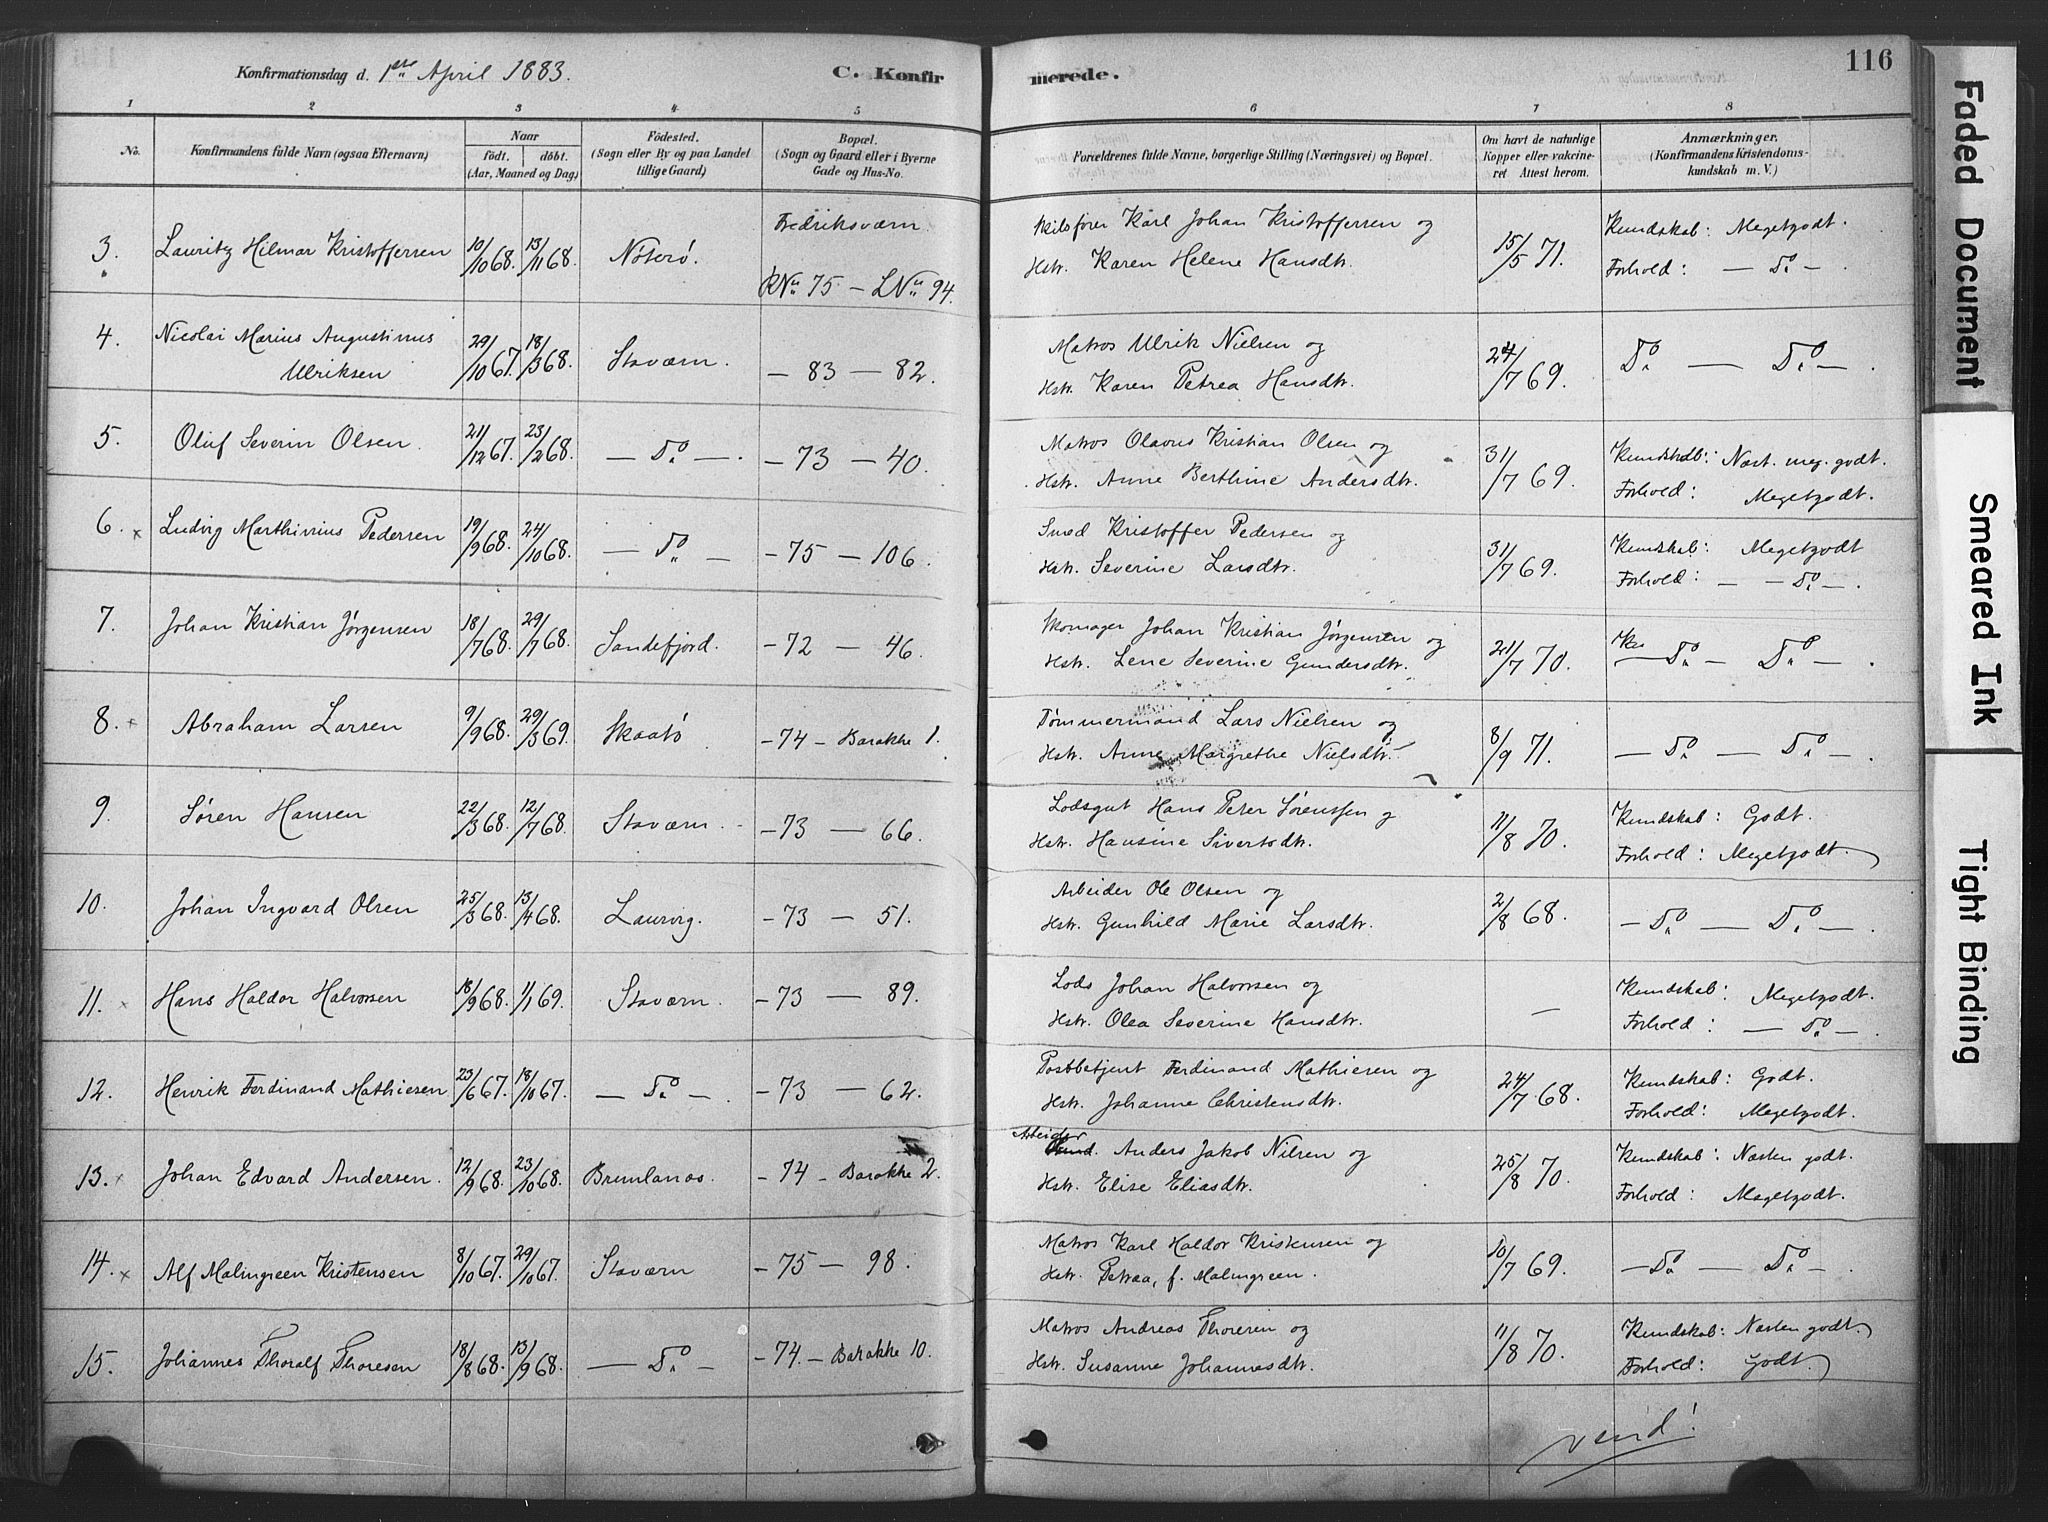 Konfirmationsdag d. 1ste April 1883.
C. Konfirmerede.
116
1 2 3 4 5 6 7 8
No.
Konfirmandens fulde Navn (ogsaa Efternavn)
Naar
født. døbt.
(Aar, Maaned og Dag)
Fødested.
(Sogn eller By og paa Landet
tillige Gaard)
Bopæl.
(Sogn og Gaard eller i Byerne
Gade og Hus-No.
Forældrenes fulde Navne, borgerlige Stilling (Næringsvei) og Bopæl.
Om havt de naturlige
Kopper eller vakcine-
ret Attest herom.
Anmærkninger.
(Konfirmandens Kristendoms-
kundskab m. V.)
3. Lauritz Hilmar Kristoffersen 10/10 68. 13/11 68. Nøterø. Fredriksværn. RNo 75 — LNo 94.
Karl Johan Kristoffersen og
Hstr. Karen Helene Hansdtr. 15/5 71.
Kundskab: Megetgodt.
Forhold: — Do — .
4. Nicolai Marius Augustinus
Ulriksen 29/10 67. 18/3 68. Staværn. — 83 — 82.
Matros Ulrik Nielsen og
Hstr. Karen Petrea Hansdtr. 24/7 69. Do — Do — .
5. Oluf Severin Olsen. 21/12 67. 23/2 68. — Do — . — 73 — 40.
Matros Olavus Kristian Olsen og
Hstr. Anne Berthine Andersdtr. 31/7 69.
Kundskab: Næst. meg. godt.
Forhold: Megetgodt.
6. x Ludvig Marthinius Pedersen 19/9 68. 24/10 68. — Do — — 75 — 106.
Smed Kristoffer Pedersen og
Hstr. Severine Larsdtr. 31/7 69.
Kundskab: Megetgodt
Forhold: — — Do — .
7. Johan Kristian Jørgensen 18/7 68. 29/7 68. Sandefjord. — 72 — 46.
Skomager Johan Kristian Jørgensen og
Hstr. Lene Severine Gundersdtr. 21/7 70. Ku — Do — Do — .
8. x Abraham Larsen 9/9 68. 29/3 69. Skaatø — 74 — Barakke 1.
Tømmermand Lars Nielsen og
Hstr. Anne Margrethe Nielsdtr. 8/9 71. — Do — Do — .
9. Søren Hansen 22/3 68. 12/7 68. Staværn. — 73 — 66.
Lodsgut Hans Peter Sørenssen og
Hstr. Hansine Sivertsdtr. 11/8 70.
Kundskab: Godt.
Forhold: Megetgodt.
10. Johan Ingvard Olsen 25/3 68. 13/4 68. Laurvig. — 73 — 51.
Arbeider Ole Olsen og
Hstr. Gunhild Marie Larsdtr. 2/8 68. — Do — Do — .
11. x Hans Haldor Halvorsen 18/9 68. 1/1 69. Staværn. — 73 — 89.
Lods Johan Halvorsen og
Hstr. Olea Severine Hansdtr. —
Kundskab: Megetgodt.
Forhold: — Do — .
12. Henrik Ferdinand Mathiesen 23/6 67. 18/10 67. — Do — . — 73 — 62.
Postbetjent Ferdinand Mathiesen og
Hstr. Johanne Christensdtr. 24/7 68.
Kundskab: Godt.
Forhold: Megetgodt.
13. x Johan Edvard Andersen. 12/9 68. 23/10 68. Brunlanæs. — 74 — Barakke 2.
Arbeider
Anders Jakob Nilsen og
Hstr. Elise Eliasdtr. 25/8 70.
Kundskab: Næsten godt.
Forhold: Megetgodt.
14. x Alf Malmgreen Kristensen 8/10 67. 29/10 67. Staværn — 75 — 98.
Matros Karl Haldor Kristensen og
Hstr. Petraa, f. Malmgreen. 10/7 69. — Do — Do — .
15. Johannes Thoralf Thoresen 18/8 68. 13/9 68. — Do — — 74. — Barakke 10.
Matros Andreas Thoresen og
Hstr. Susanne Johannesdtr. 11/8 70.
Kundskab: Næsten godt.
Forhold: Godt.
vend!
Faded Document
Smeared Ink
Tight Binding